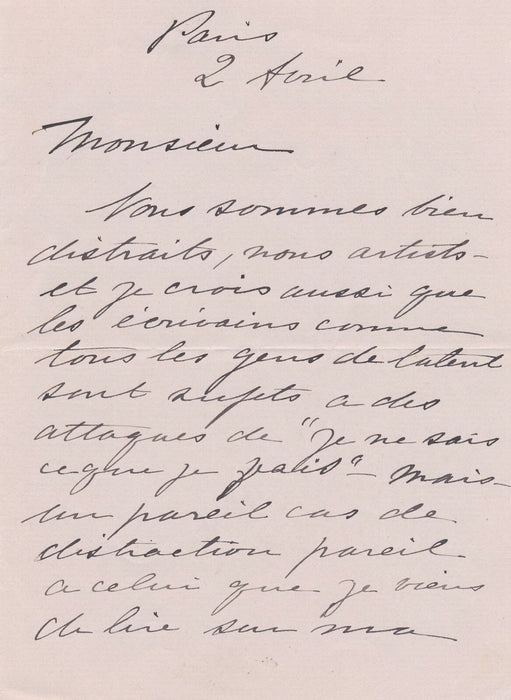 Paris
2 Avril
Monsieur
Nous sommes bien
distraits, nous artists -
et je crois aussi que
les écrivains comme
tous les gens de talent
sont sujets a des
attaques de "Je ne sais
ceque je fais" - mais -
un pareil cas de
distraction pareil
a celui que je viens
de lire sur ma